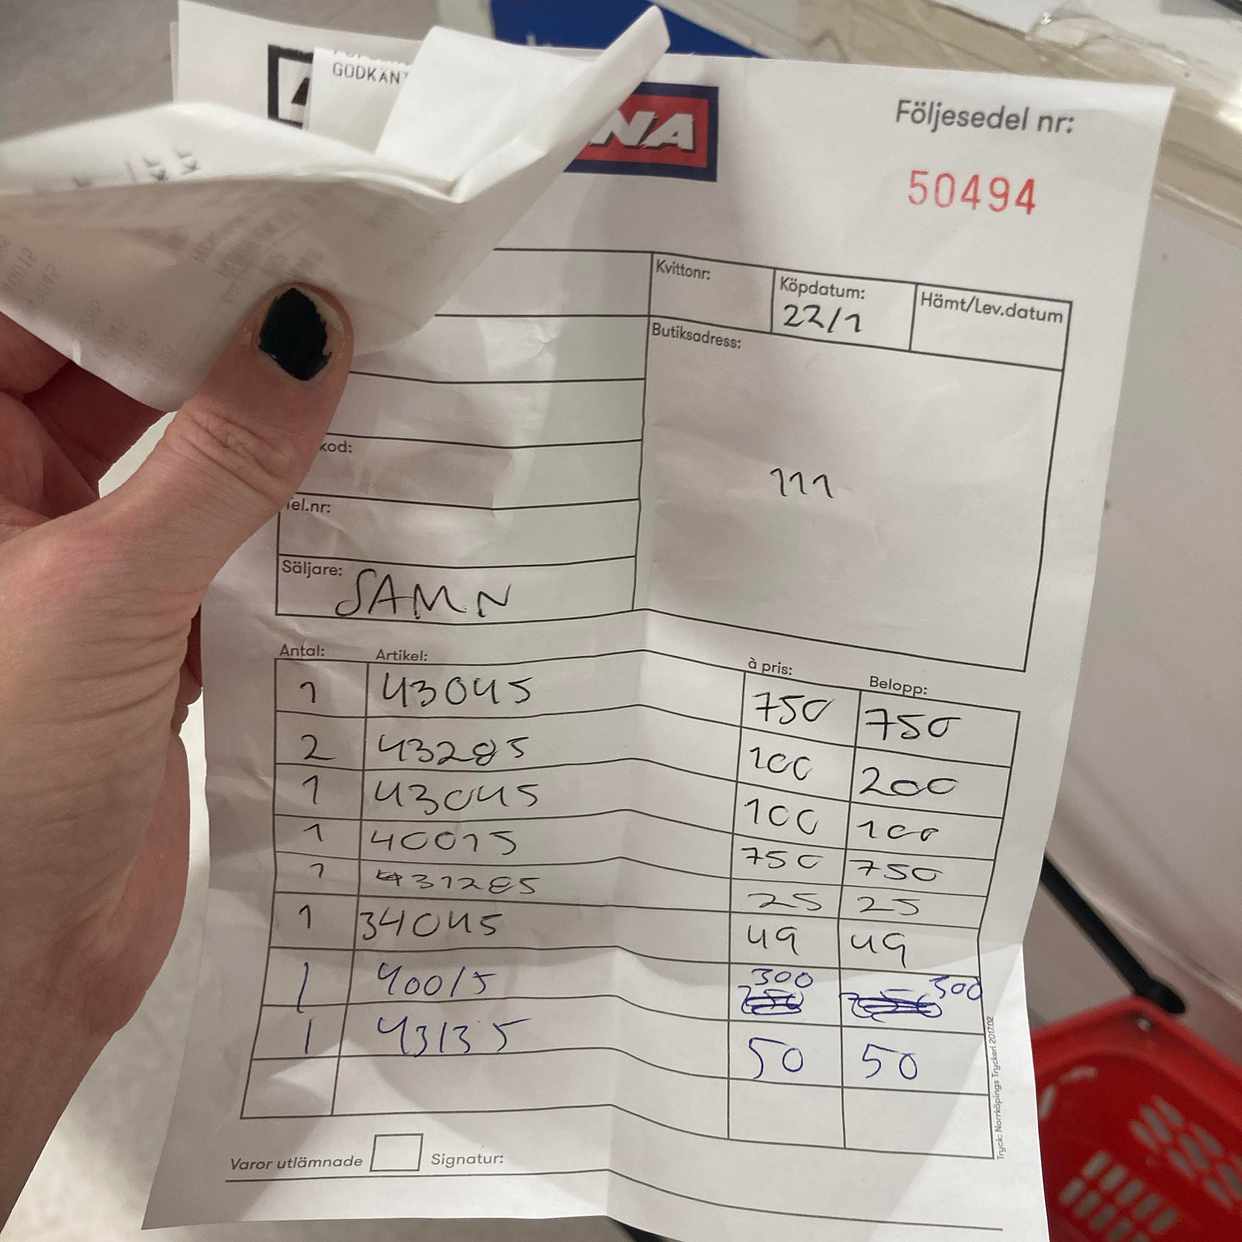 GODKÄN
NA
Följesedel nr:
50494
Kvittonr:
Köpdatum:
22/1
Hämt/Lev.datum
Butiksadress:
111
kod:
Tel.nr:
Säljare: SAMN
Antal: Artikel: à pris: Belopp:
1 43045 750 750
2 43285 100 200
1 43045 100 100
1 40015 750 750
1 431285 25 25
1 34045 49 49
1 40015 300 300
1 43135 50 50
Varor utlämnade Signatur:
Tryck: Norrköpings Tryckeri 201702